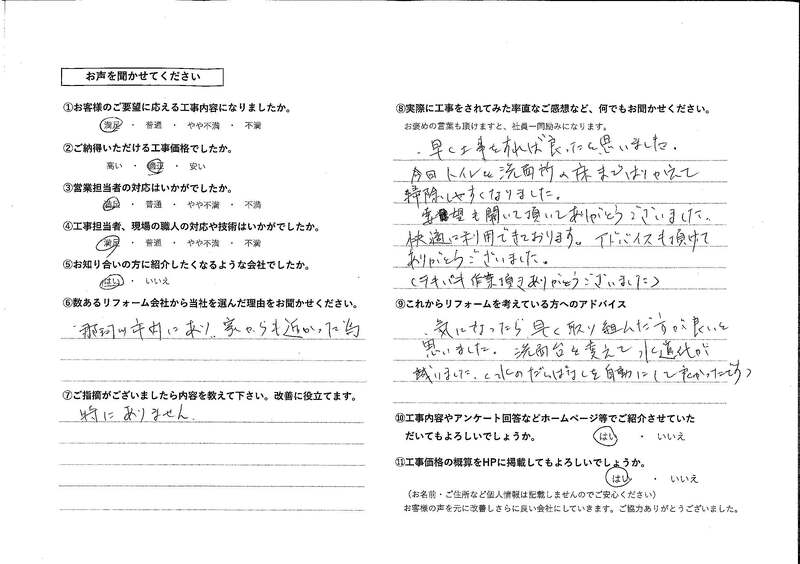 お声を聞かせてください
①お客様のご要望に応える工事内容になりましたか。
満足 ・ 普通 ・ やや不満 ・ 不満
②ご納得いただける工事価格でしたか。
高い ・ 適正 ・ 安い
③営業担当者の対応はいかがでしたか。
満足 ・ 普通 ・ やや不満 ・ 不満
④工事担当者、現場の職人の対応や技術はいかがでしたか。
満足 ・ 普通 ・ やや不満 ・ 不満
⑤お知り合いの方に紹介したくなるような会社でしたか。
はい ・ いいえ
⑥数あるリフォーム会社から当社を選んだ理由をお聞かせください。
・那珂川市内にあり、家からも近かった為
⑦ご指摘がございましたら内容を教えて下さい。改善に役立てます。
特にありません。
⑧実際に工事をされてみた率直なご感想など、何でもお聞かせください。
お褒めの言葉も頂けますと、社員一同励みになります。
・早く工事をすれば良かったと思いました。
今回トイレと洗面所の床まではりかえて
掃除しやすくなりました。
要望も聞いて頂いてありがとうございました。
快適に利用できております。アドバイスも頂けて
ありがとうございました。
(テキパキ作業頂きありがとうございました)
⑨これからリフォームを考えている方へのアドバイス
・気になったら早く取り組んだ方が良いと
思いました。洗面台を変えて水道代が
減りました。(水のだしっぱなしを自動にして良かったです)
⑩工事内容やアンケート回答などホームページ等でご紹介させていた
だいてもよろしいでしょうか。 はい ・ いいえ
⑪工事価格の概算をHPに掲載してもよろしいでしょうか。
はい ・ いいえ
(お名前・ご住所など個人情報は記載しませんのでご安心ください)
お客様の声を元に改善しさらに良い会社にしていきます。ご協力ありがとうございました。